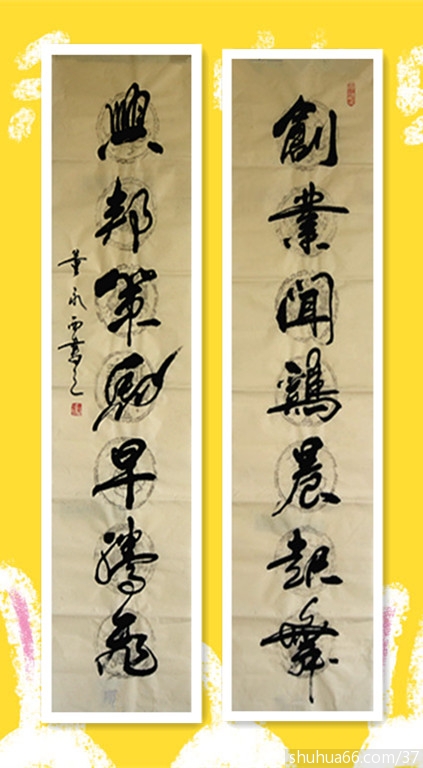 創業聞鷄晨起舞
興邦策早騰飛
董永西書之
shuhua66.com/37